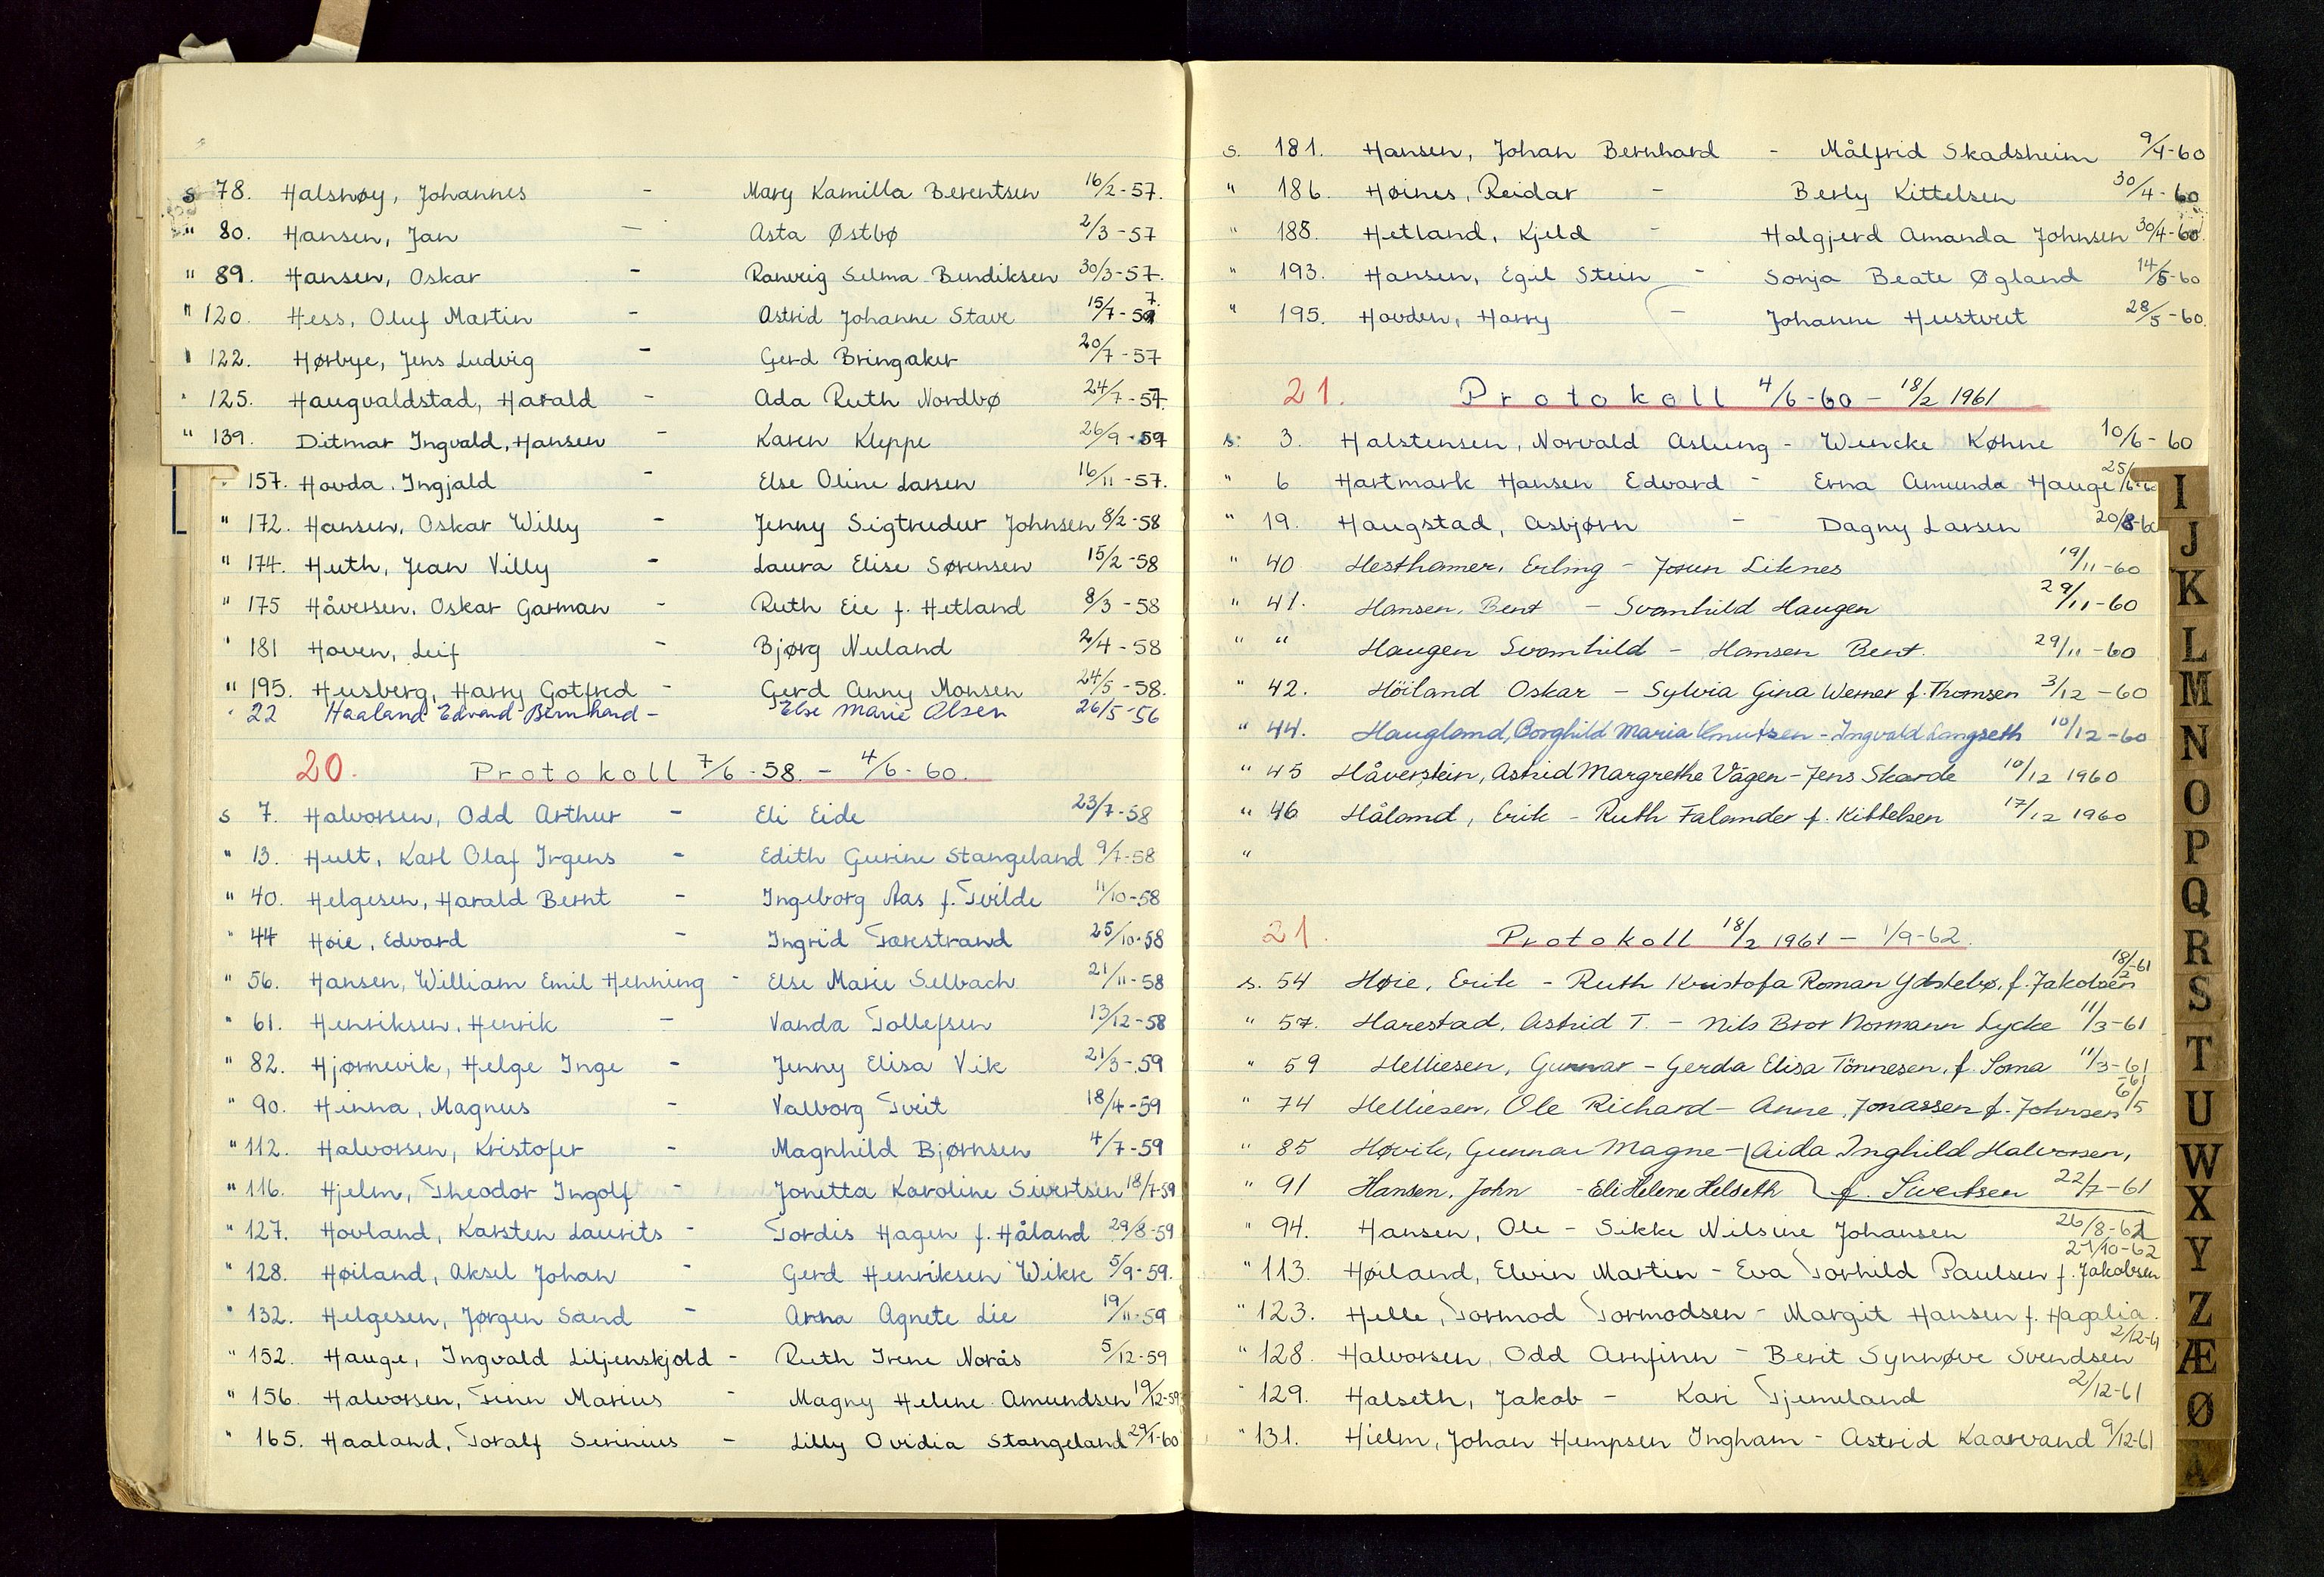 s 78. Halsnøy, Johannes - Mary Kamilla Berentsen 16/2-57.
" 80. Hansen, Jan - Asta Østbø 2/3-57
" 89. Hansen, Oskar - Ranveig Selma Bendiksen 30/3-57.
" 120. Hess, Oluf Martin - Astrid Johanne Stave 15/7-57
" 122. Hørbye, Jens Ludvig - Gerd Bringaker 20/7-57
" 125. Haugvaldstad, Harald - Ada Ruth Nordbø 24/7-57.
" 139. Ditmar Ingvald, Hansen - Karen Kleppe 26/9-57
" 157. Hovda, Ingjald - Else Oline Larsen 16/11-57.
" 172. Hansen, Oskar Willy - Jenny Sigtrudur Johnsen 8/2-58
" 174. Huth, Jean Villy - Laura Elise Sørensen 15/2-58
" 175 Håversen, Oskar Garman - Ruth Eie f. Hetland 8/3-58
" 181 Hoven, Leif - Bjørg Nuland 2/4-58
" 195. Husberg, Harry Gotfred - Gerd Anny Monsen 24/5-58.
" 22 Haaland Edvard Bernhard - Else Marie Olsen 26/5-56
20. Protokoll 7/6-58. - 4/6-60.
s 7. Halvorsen, Odd Arthur - Eli Eide 23/7-58
" 13. Hult, Karl Olaf Irgens - Edith Gurine Stangeland 9/7-58
" 40. Helgesen, Harald Bernt - Ingeborg Aas f. Tvilde 11/10-58
" 44 Høie, Edvard - Ingrid Torestrand 25/10-58
" 56. Hansen, William Emil Henning - Else Marie Selbach 21/11-58
" 61. Henriksen, Henrik - Vanda Tollefsen 13/12-58
" 82. Hjørnevik, Helge Inge - Jenny Elisa Vik 21/3-59
" 90. Hinna, Magnus - Valborg Tveit 18/4-59
" 112. Halvorsen, Kristofer - Magnhild Bjørnsen 4/7-59
" 116. Hjelm, Theodor Ingolf - Jonetta Karoline Sivertsen 18/7-59
" 127. Hovland, Karsten Laurits - Tordis Hagen f. Håland 29/8-59
" 128. Høiland, Aksel Johan - Gerd Henriksen Wikre 5/9-59.
" 132. Helgesen, Jørgen Sand - Arna Agnete Lie 19/11-59
" 152. Hauge, Ingvald Liljenskjold - Ruth Irene Norås 5/12-59
" 156. Halvorsen, Finn Marius - Magny Helene Amundsen 19/12-59
" 165. Haaland, Toralf Serinius - Lilly Ovidia Stangeland 29/1-60
s. 181. Hansen, Johan Bernhard - Målfrid Skadsheim 9/4-60
" 186. Høines, Reidar - Berly Kittelsen 30/4-60
" 188. Hetland, Kjeld - Halgjerd Amanda Johnsen 30/4-60.
" 193. Hansen, Egil Stein - Sonja Beate Øgland 14/5-60
" 195. Hovden, Harry - Johanne Hustveit 28/5-60.
21. Protokoll 4/6-60 - 18/2 1961
s. 3. Halstensen, Norvald Aslung - Wencke Køhne 10/6-60
" 6 Hartmark Hansen Edvard - Erna Amunda Hauge 25/6-6
" 19. Haugstad, Asbjørn - Dagny Larsen 20/8-6
" 40 Hesthamer, Erling - Josun Liknes 19/11-60
" 41. Hansen, Bent - Svanhild Haugen 29/11-60
" " Haugen Svanhild - Hansen Bent. 29/11-60
" 42. Höiland Oskar - Sylvia Gina Werner f. Thomsen 3/12-60
" 44. Haugland, Borghild Maria Knutsen - Ingvald Langseth 10/12-60
" 45 Håverstein, Astrid Margrethe Vågen - Jens Skarde 10/12 1960
" 46 Håland, Erik - Ruth Falander f. Kittelsen 17/12 1960
"
21. Protokoll 18/2 1961 - 1/9-62.
s. 54 Høie, Erik - Ruth Kristofa Roman Ydstebø, f. Jakobsen 18/2-61
" 57. Harestad, Astrid T. - Nils Bror Normann Lycke 11/3-61
" 59 Helliesen, Gunnar - Gerda Elisa Tönnesen, f. Soma 11/3-61
" 74 Helliesen, Ole Richard - Anne Jonassen f. Johnsen 6/5-61
" 85 Høvik, Gunnar Magne - Aida Inghild Halvorsen,
" 91 Hansen, John - Eli Helene Helseth f. Sivertsen 22/7-61
" 94. Hansen, Ole - Sikke Nilsine Johansen 26/8-61
" 113. Høiland, Elvin Martin - Eva Torhild Paulsen f. Jakobsen 21/10-62
" 123. Helle, Tormod Tormodsen - Margit Hansen f. Hagalia.
" 128. Halvorsen, Odd Arnfinn - Berit Synnøve Svendsen 2/12-61
" 129. Halseth, Jakob - Kari Tjemeland 2/12-61
" 131. Hielm, Johan Hempsen Ingham - Astrid Kaarvand 9/12-61
I
J
K
L
M
N
O
P
Q
R
S
T
U
W
X
Y
Z
Æ
Ø